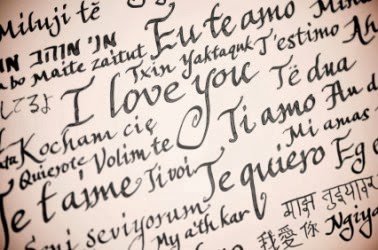 Miluji tě Eu te amo
אני אוהב
bo Maite zaitut Txin Yaktaquk T'estimo
してるよ I love you Të dua
Kocham cię Ti amo Au
Quierote Volim te Mi amas
Je t'aime Ti voi Te quiero Eg
seviyorum
My a'th kar 我爱你 Ngiya